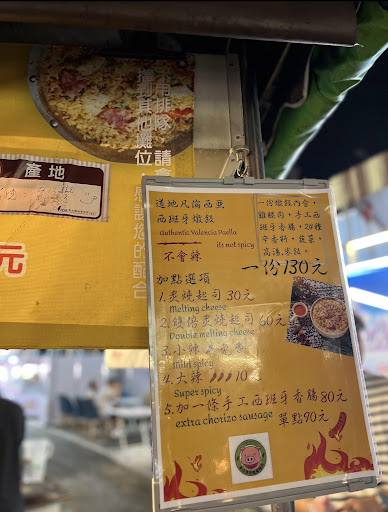 產地
元
道地瓦倫西亞
西班牙燉飯
Authentic Valencia Paella
its not spicy
不會辣
一份燉飯內含,
雞腿肉,手工西
班牙香腸,20種
辛香料,蔬菜,
高湯,米飯,
一份130元
加點選項
1.炙燒起司 30元
Melting cheese
2.雙倍炙燒起司 60元
Double melting cheese
3.小辣
Mild spicy
4.大辣 10元
Super spicy
5.加一條手工西班牙香腸 80元
extra chorizo sausage 單點90元